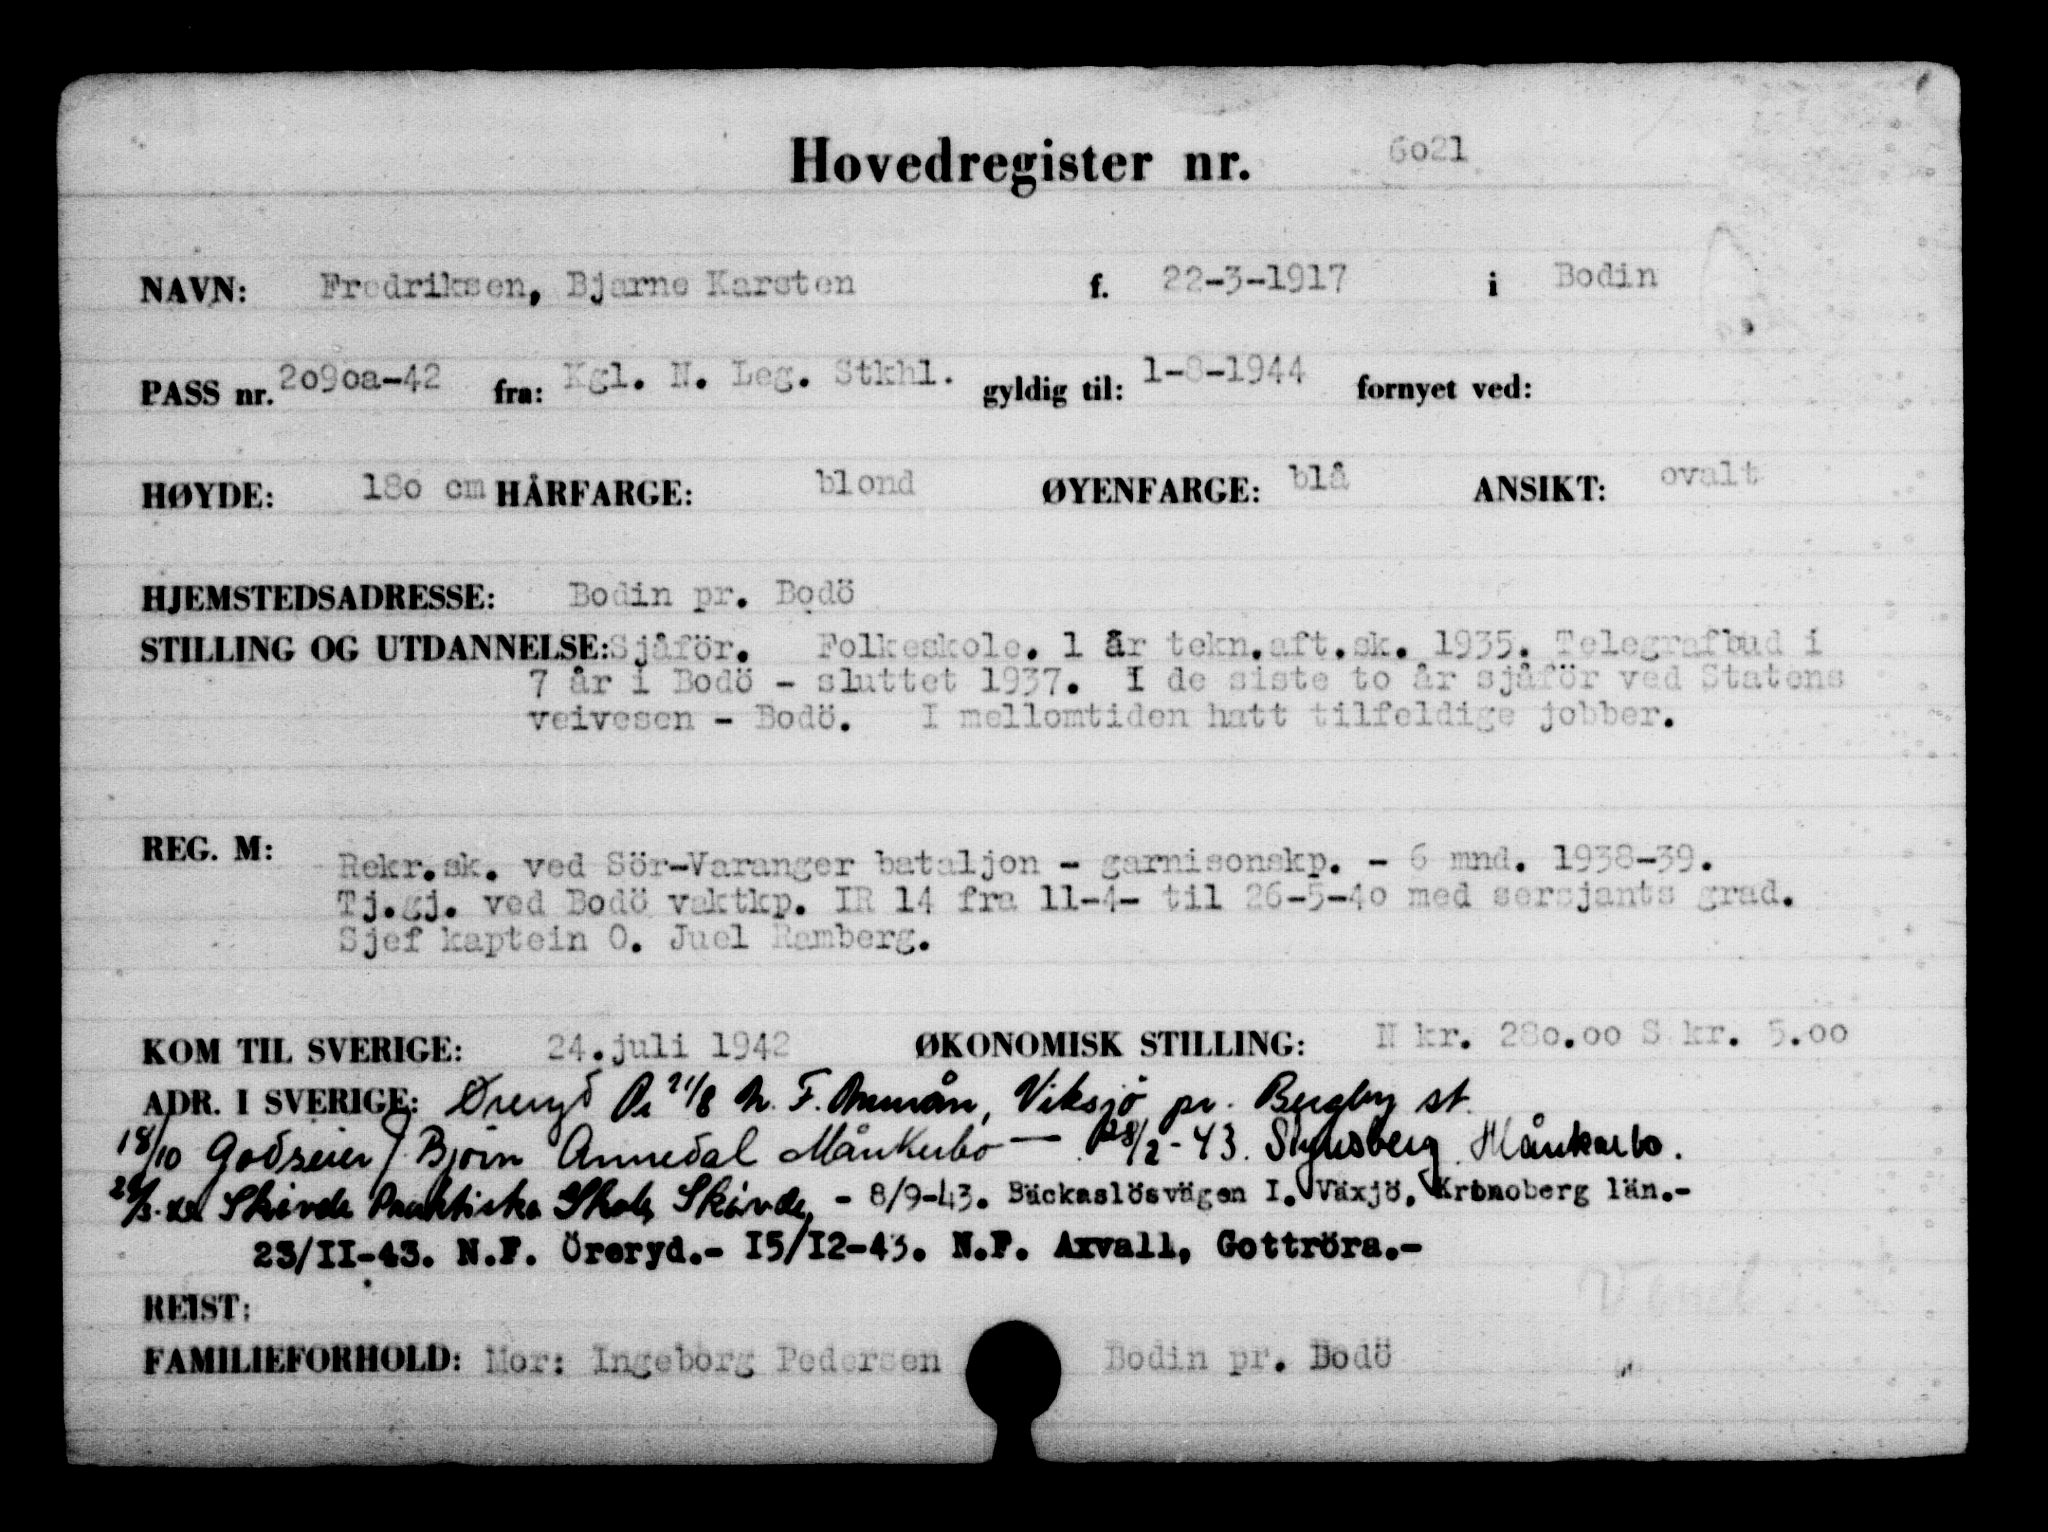 Hovedregister nr. 6o21
NAVN: Fredriksen, Bjarne Karsten f. 22-3-1917 i Bodin
PASS nr. 2o9oa-42 fra: Kgl. N. Leg. Stkhl. gyldig til: 1-8-1944 fornyet ved:
HØYDE: 18o cm HÅRFARGE: blond ØYENFARGE: blå ANSIKT: ovalt
HJEMSTEDSADRESSE: Bodin pr. Bodö
STILLING OG UTDANNELSE: Sjåför. Folkeskole. 1 år tekn.aft.sk. 1935. Telegrafbud i
7 år i Bodö - sluttet 1937. I de siste to år sjåför ved Statens
veivesen - Bodö. I mellomtiden hatt tilfeldige jobber.
REG. M:
Rekr.sk. ved Sör-Varanger bataljon - garnisonskp. - 6 mnd. 1938-39.
Tj.gj. ved Bodö vaktkp. IR 14 fra 11-4- til 26-5-4o med sersjants grad.
Sjef kaptein O. Juel Ramberg.
KOM TIL SVERIGE: 24.juli 1942 ØKONOMISK STILLING: N kr. 28o.oo S kr. 5.oo
ADR. I SVERIGE: Øreryd F. Viksjö pr. st.
18/10 Godseier Björn Annedal Månkarbo — 28/2-43. Månkarbo.
Skövde Praktiska Skola, Skövde, - 8/9-43. Bäckaslösvägen I. Växjö, Kronoberg län.-
23/II-43. N.F. Öreryd.- I5/I2-43. N.F. Axvall, Gottröra.-
REIST:
FAMILIEFORHOLD: Mor: Ingeborg Pedersen Bodin pr. Bodö